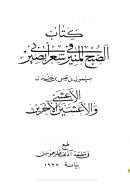 كتاب
الصبح المنير في شعر أبي بصير
ميمون بن قيس بن جندل
الأعشى
والأعشين الآخرين
طبع
في مطبعة آدلف هلزهوسن
بيانة ١٩٢٧